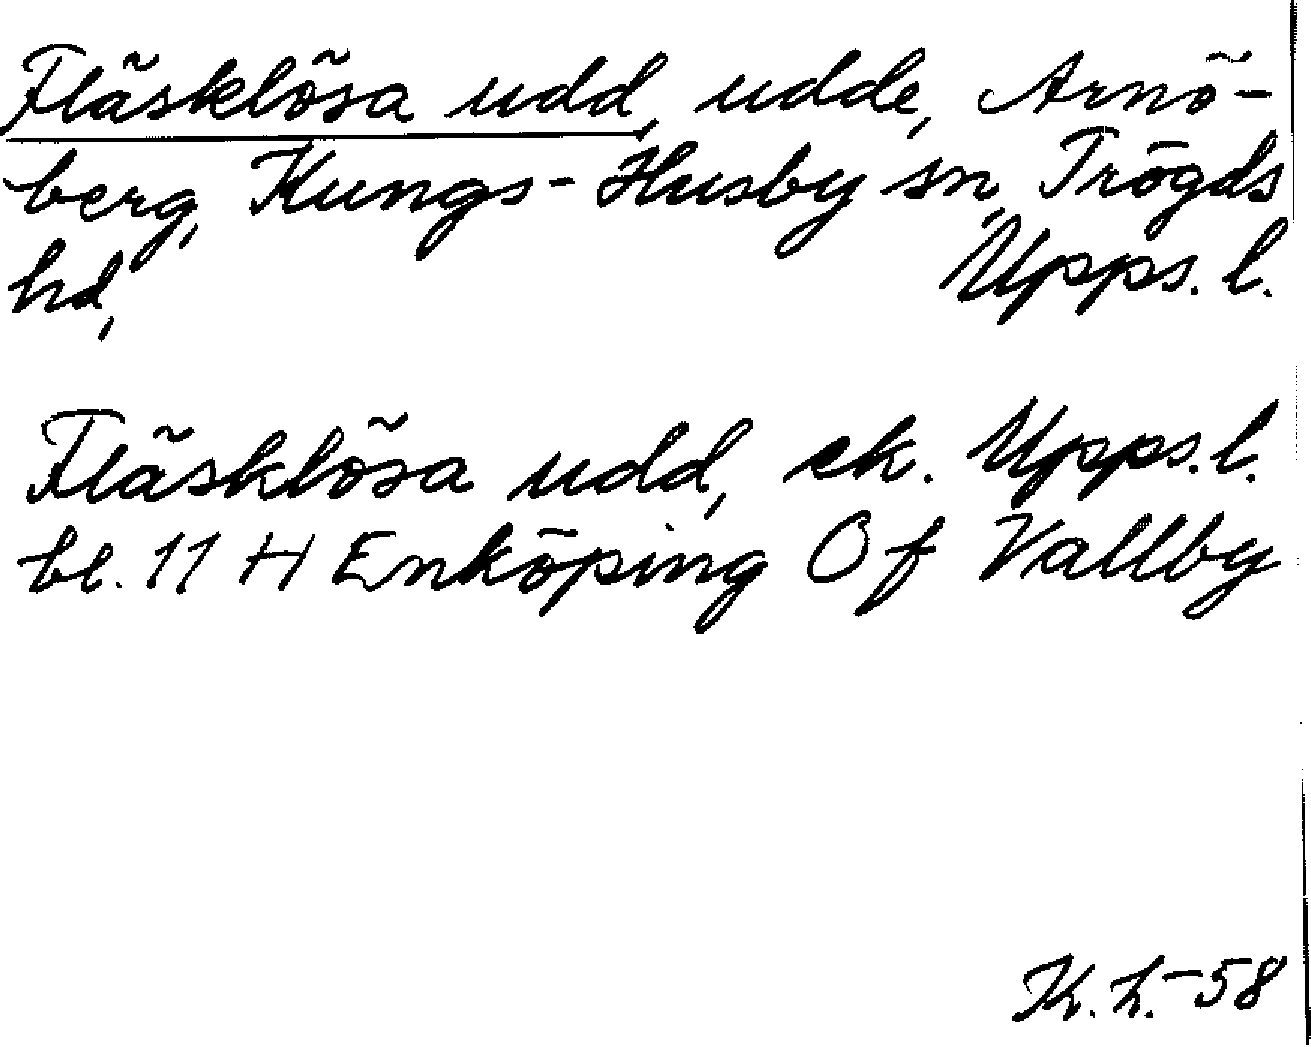 Fläsklösa udd, udde, Arnö-
berg, Kungs-Husby sn, Trögds
hd, Upps. l.
Fläsklösa udd, ek. Upps. l.
bl. 11 H Enköping Of Vallby
K. L. -58